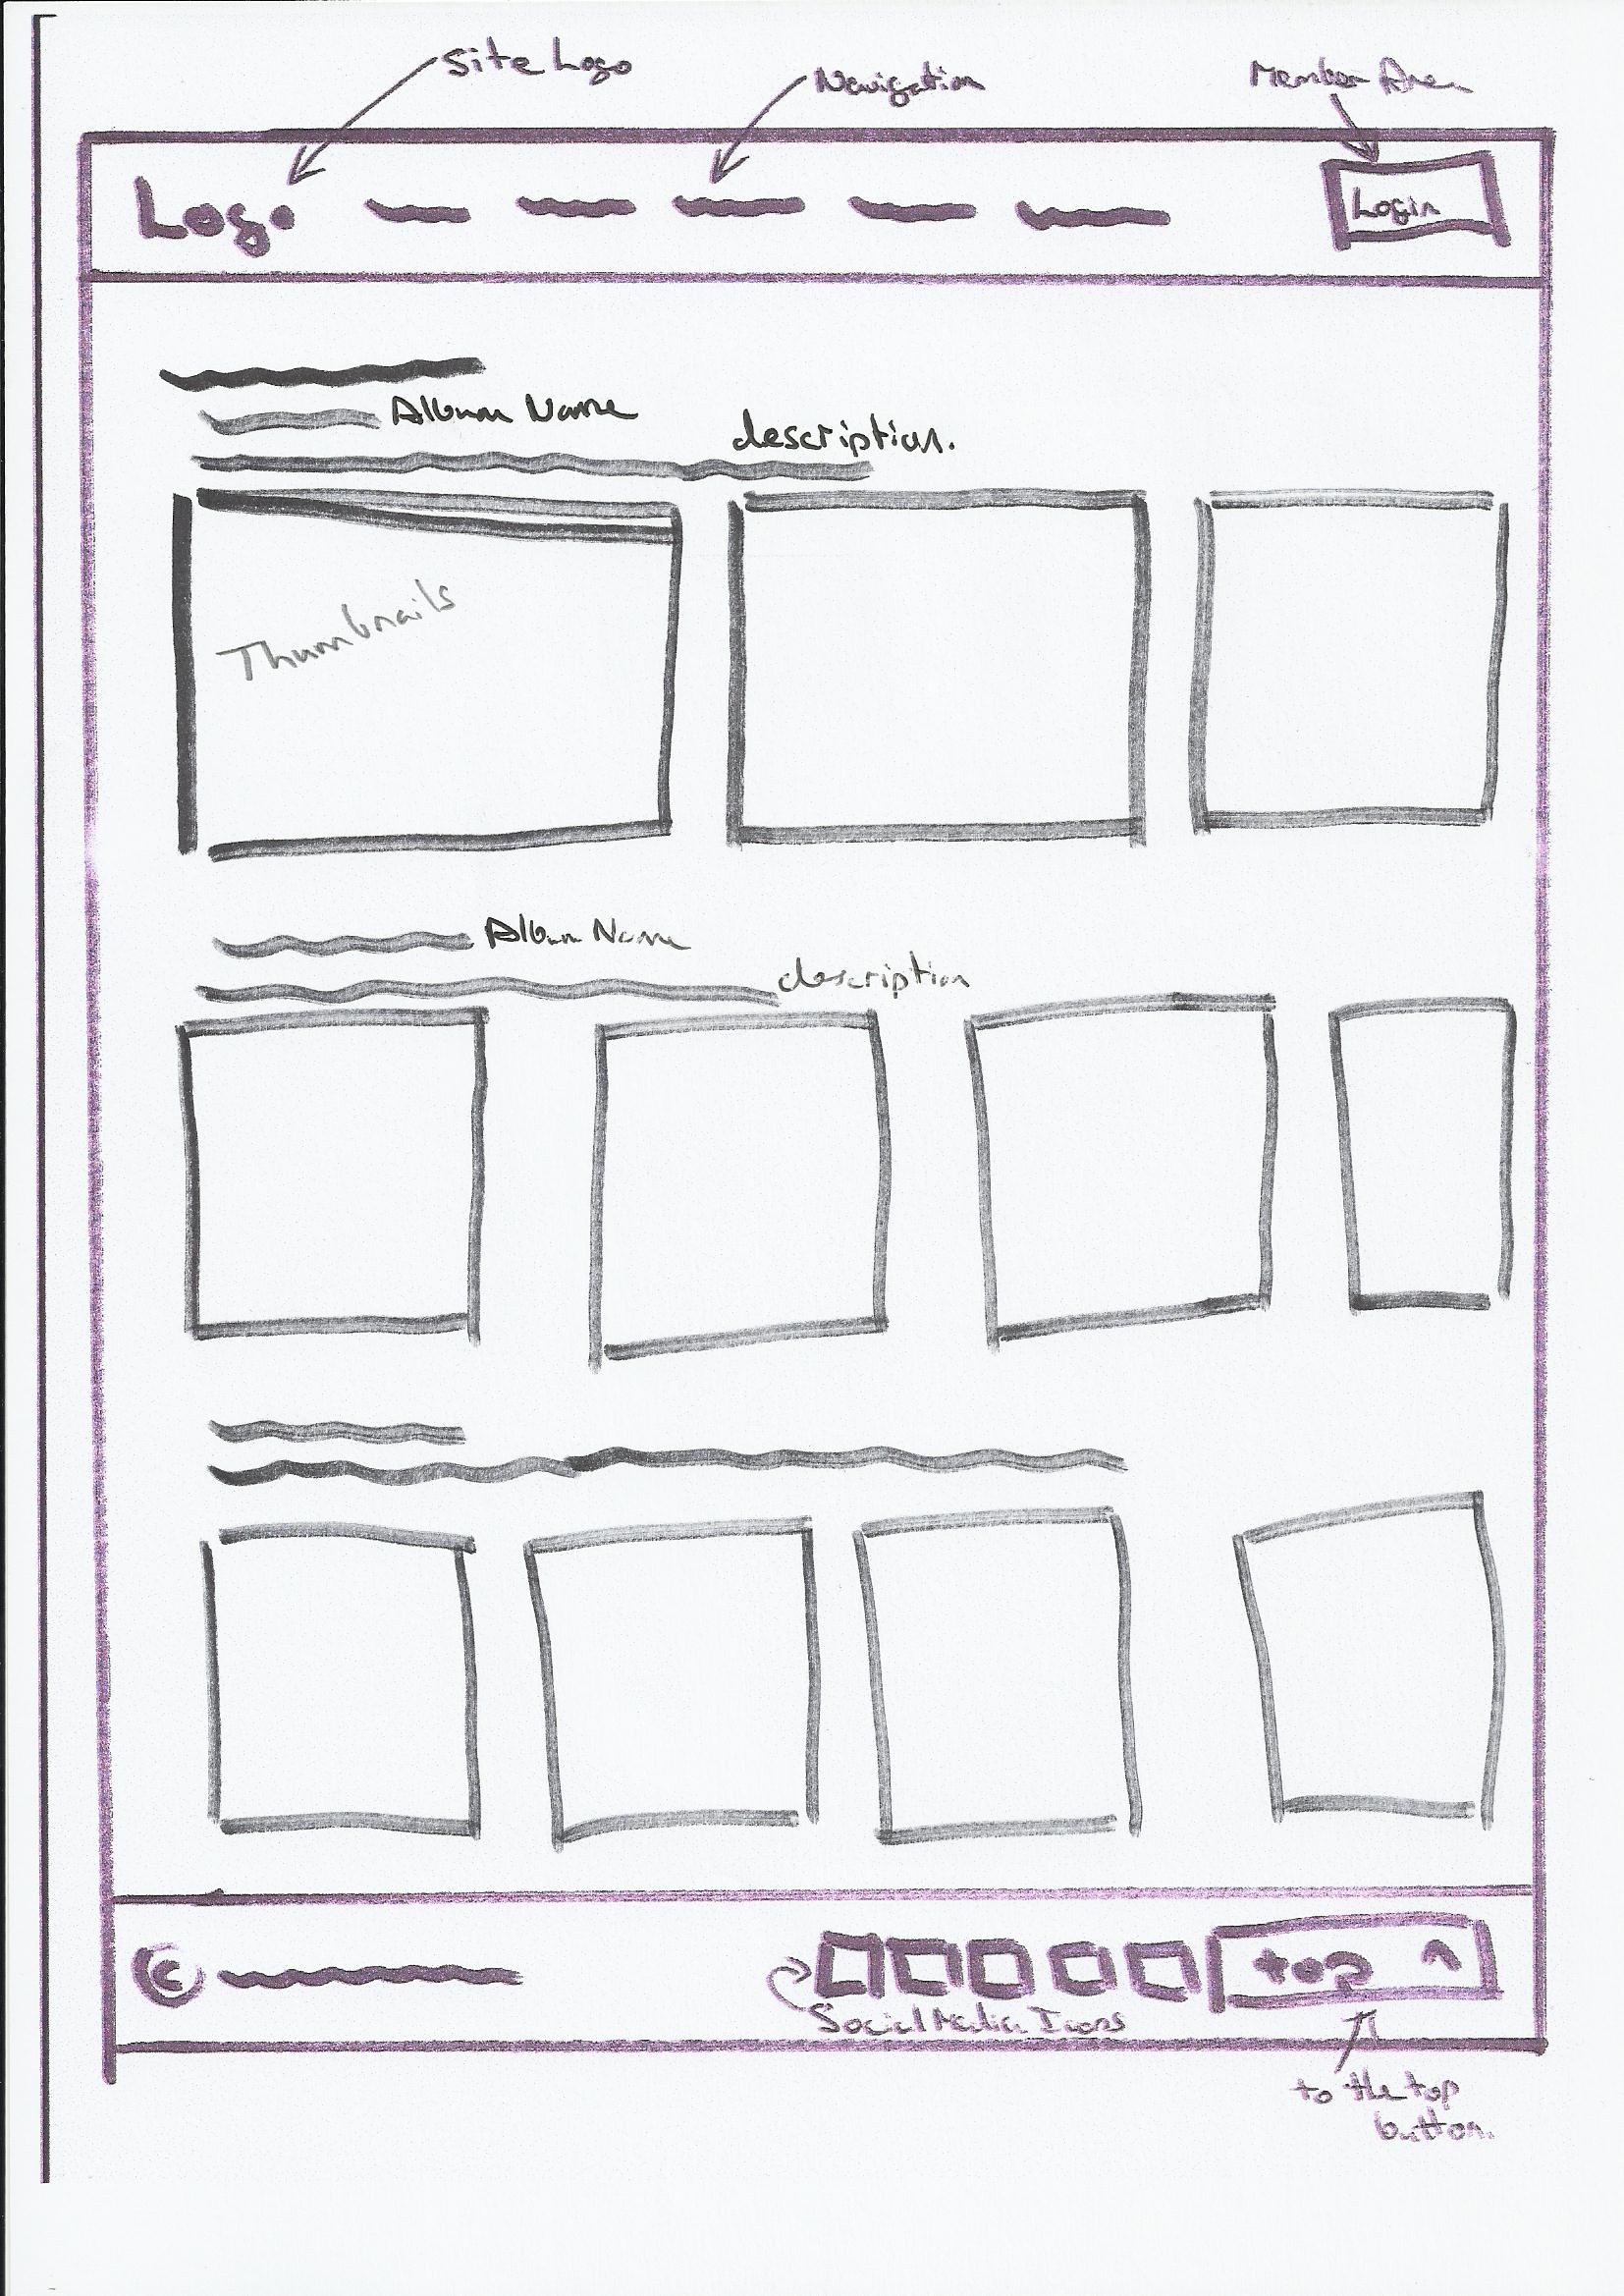 Site Logo
Navigation
Member Area
Logo
Login
Album Name
description.
Thumbnails
Album Name
description
©
top ^
Social Media Icons
to the top
button.